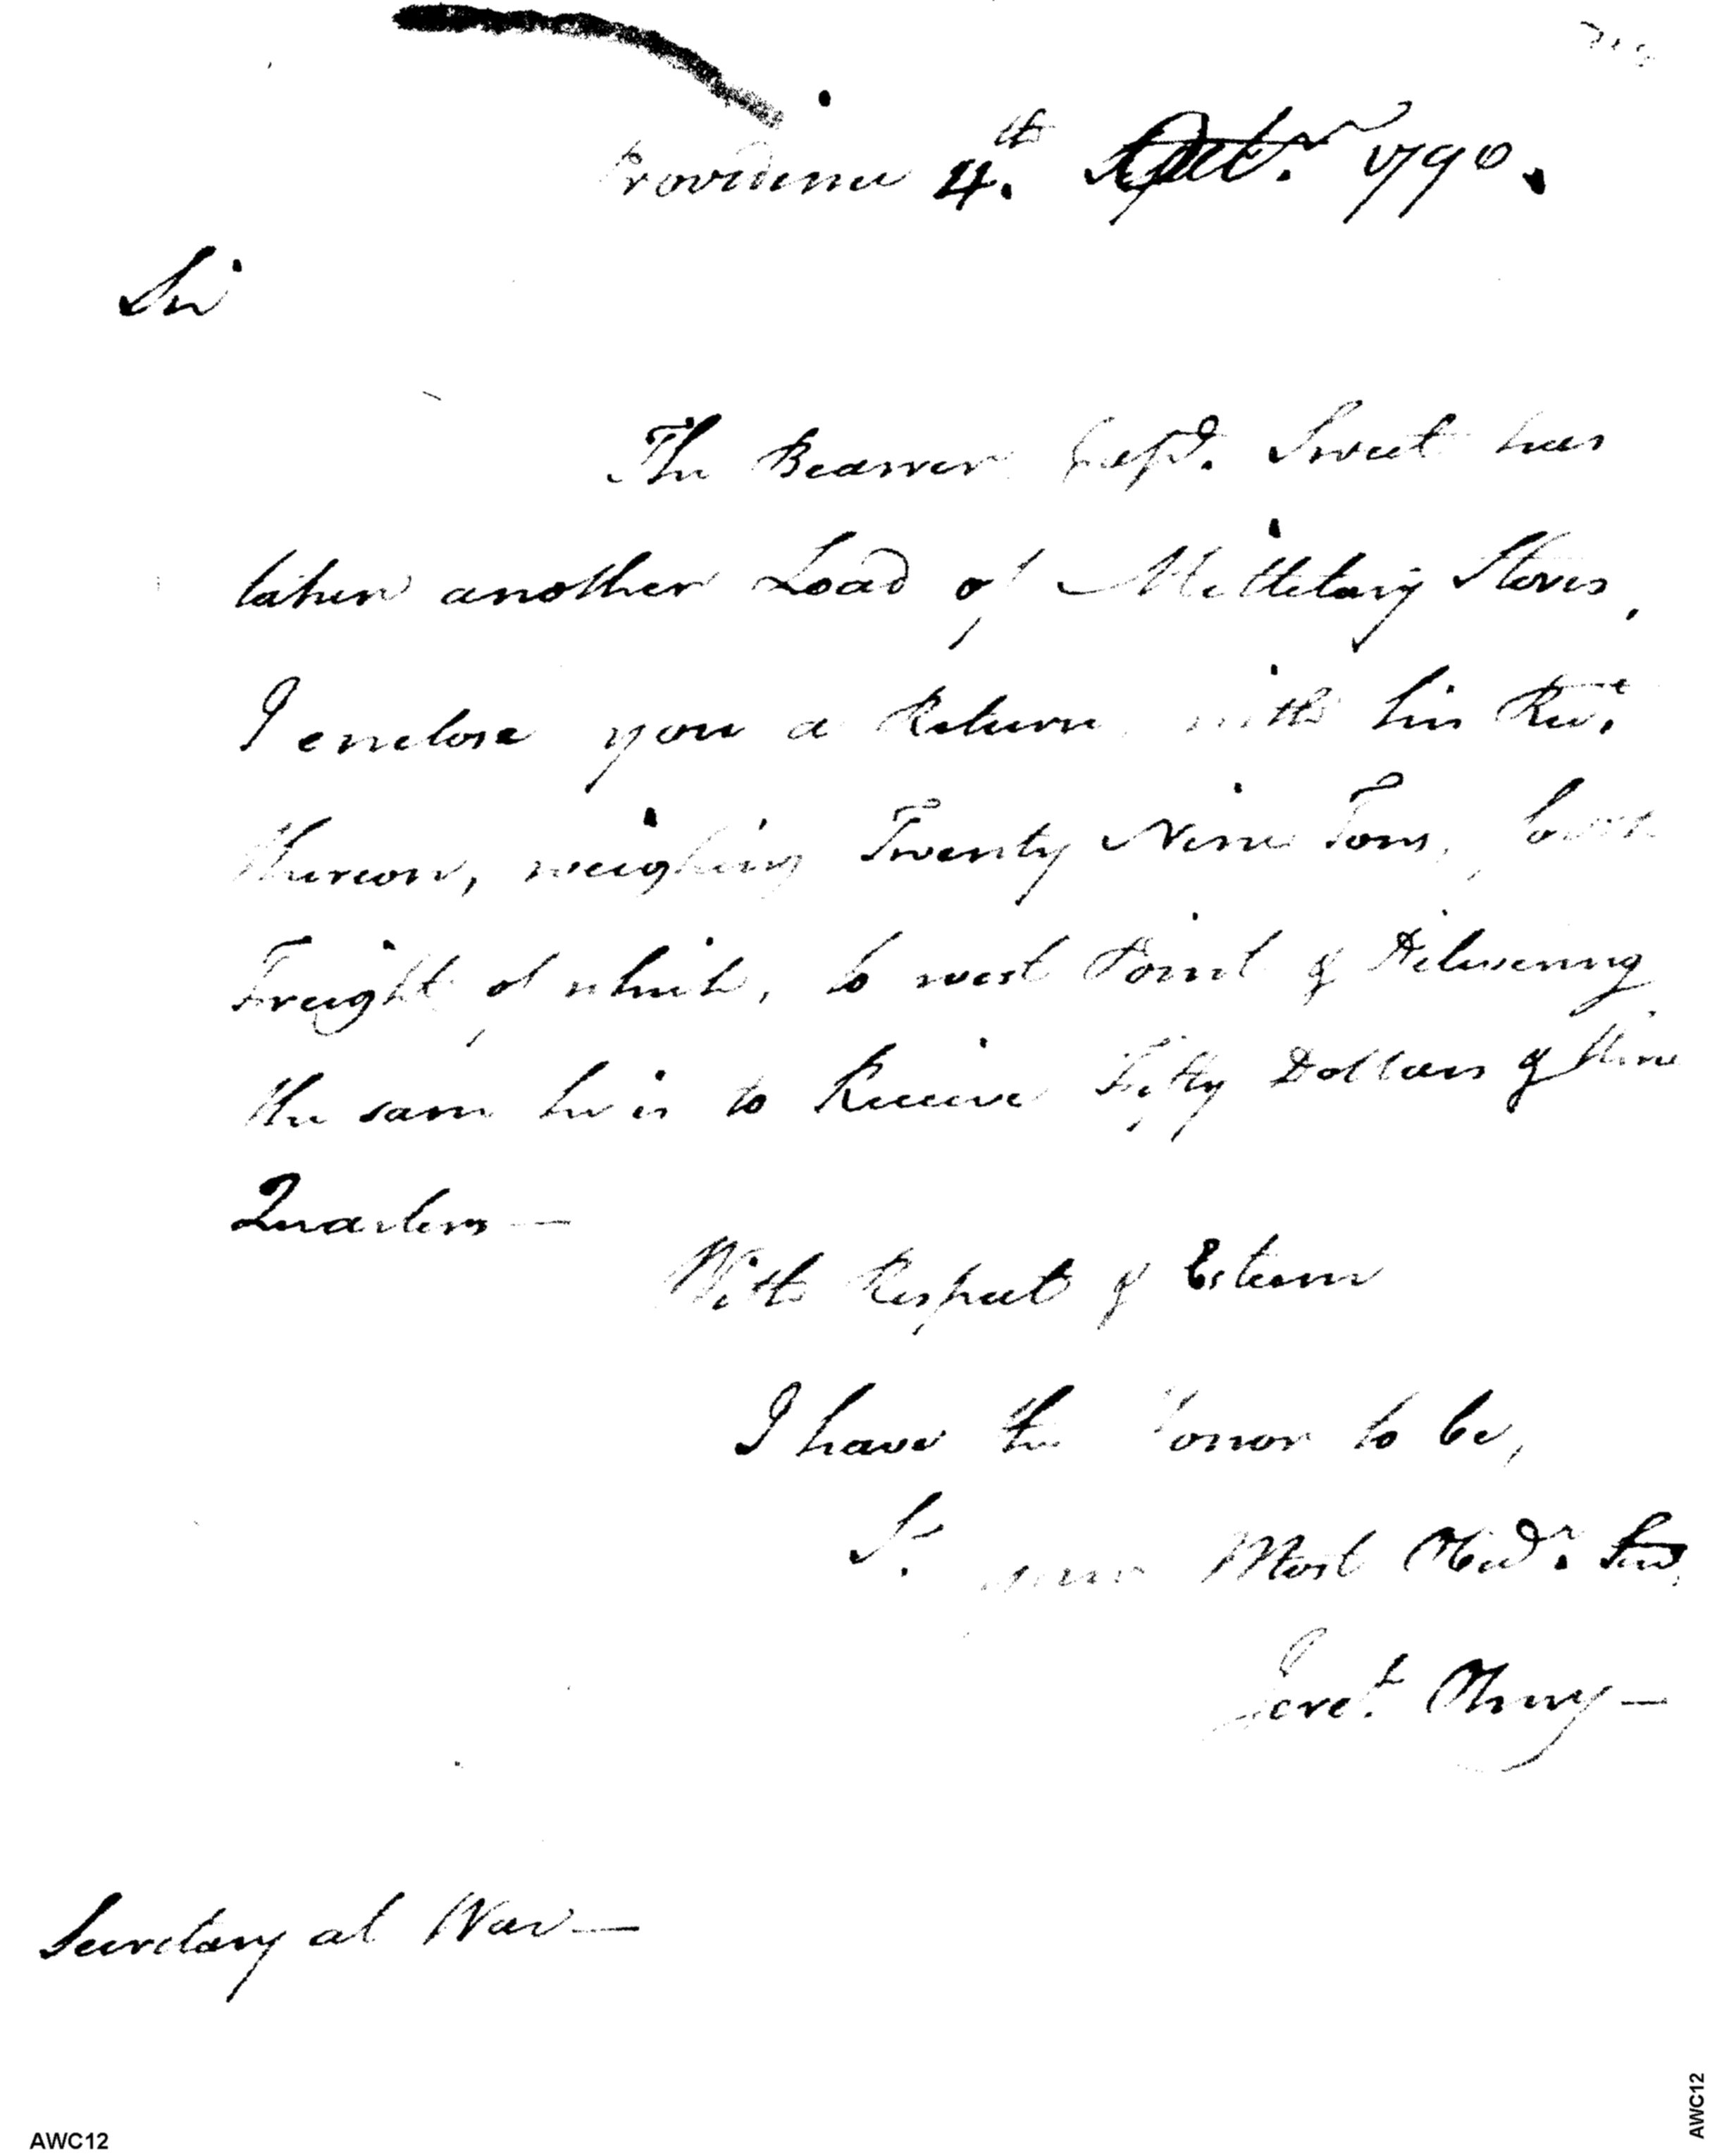 Providence 4.th Octr. 1790.
Sir
The Bearrer Capt. Sweet has
taken another Load of Milletary Stores,
I enclose you a Return with his Rect.
thereon, weighing Twenty Nine Tons,
Freight of which, to west Point & Delivering
the same he is to Receive Fifty Dollars & three
Quarters—
With Respect & Esteem
I have the Honor to be,
Sr. your Most Obedr. Serv.
Jereh. Olney—
Secretary at War—
AWC12
AWC12